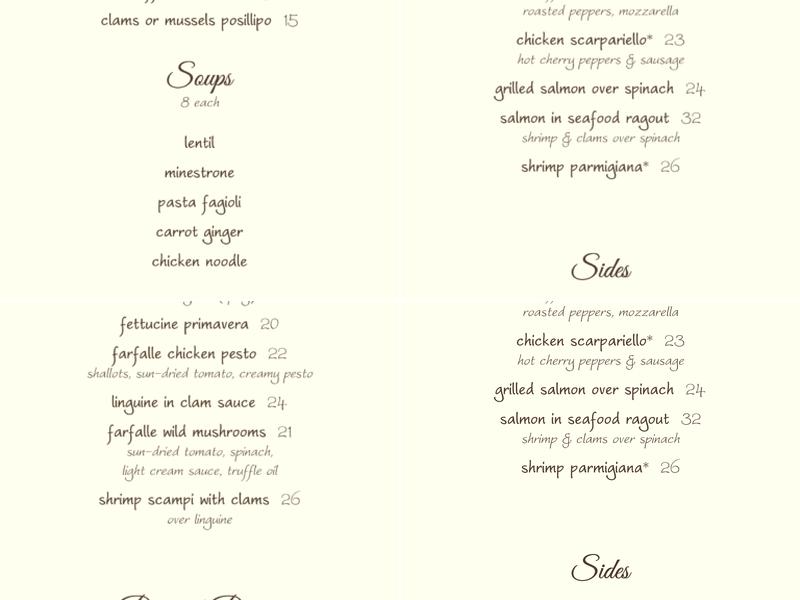 clams or mussels posillipo 15
Soups
8 each
lentil
minestrone
pasta fagioli
carrot ginger
chicken noodle
roasted peppers, mozzarella
chicken scarpariello* 23
hot cherry peppers & sausage
grilled salmon over spinach 24
salmon in seafood ragout 32
shrimp & clams over spinach
shrimp parmigiana* 26
Sides
fettucine primavera 20
farfalle chicken pesto 22
shallots, sun-dried tomato, creamy pesto
linguine in clam sauce 24
farfalle wild mushrooms 21
sun-dried tomato, spinach,
light cream sauce, truffle oil
shrimp scampi with clams 26
over linguine
roasted peppers, mozzarella
chicken scarpariello* 23
hot cherry peppers & sausage
grilled salmon over spinach 24
salmon in seafood ragout 32
shrimp & clams over spinach
shrimp parmigiana* 26
Sides